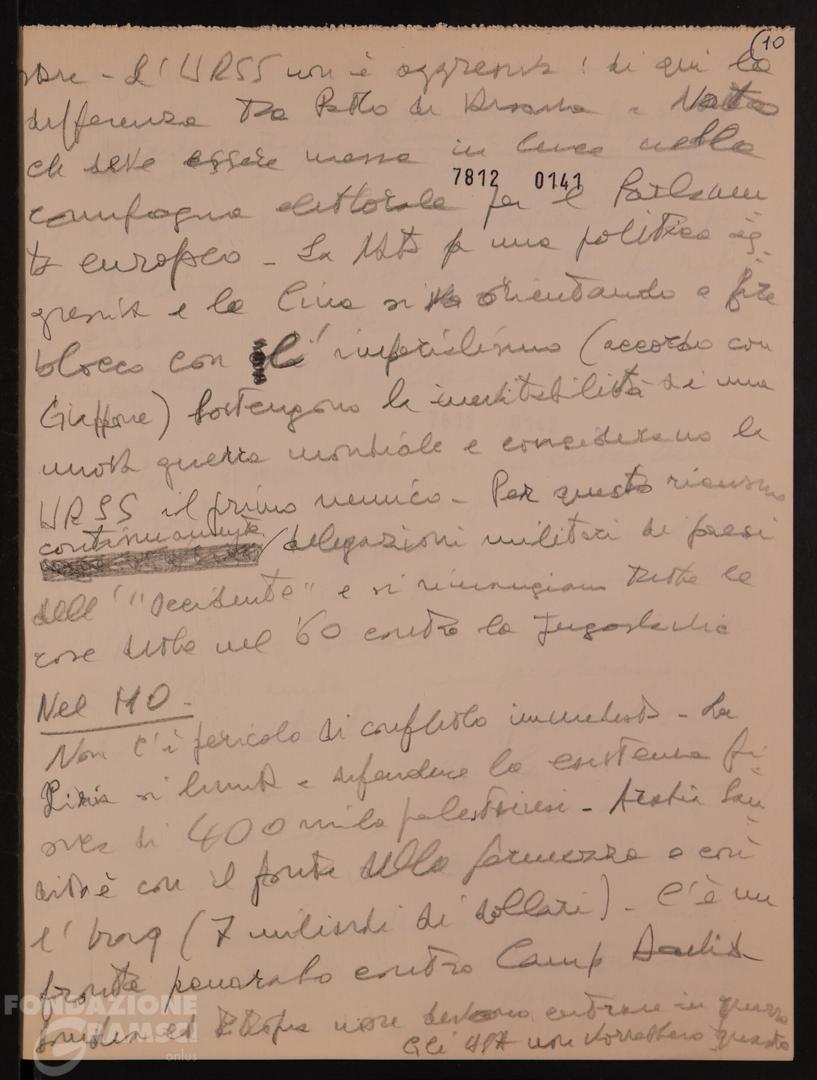 10
- L'URSS non è : di qui la
differenza tra Patto di Varsavia e Nato
che deve essere messa in luce nella
7812 0141
campagna elettorale per il Parlamen
to europeo - La fa una politica ag-
gressiva e la Cina si sta orientando a fare
blocco con l'imperialismo (accordo con
Giappone) Sostengono la inevitabilità di una
nuova guerra mondiale e considerano la
URSS il primo nemico - Per questo ricevono
continuamente
delegazioni militari di paesi
dell' "occidente" e si rimangiano tutte le
cose dette nel '60 contro la Jugoslavia
Nel MO -
Non c'è pericolo di conflitto immediato - La
Siria si limita a difendere la esistenza fi
sica di 400 mila palestinesi - Arabia Sau
dita è con il fronte della fermezza e così
l'Iraq (7 miliardi di dollari) - C'è un
fronte panarabo contro Camp David
ed non devono entrare in questo
Gli USA non vorrebbero questo
FONDAZIONE
GRAMSCI
onlus